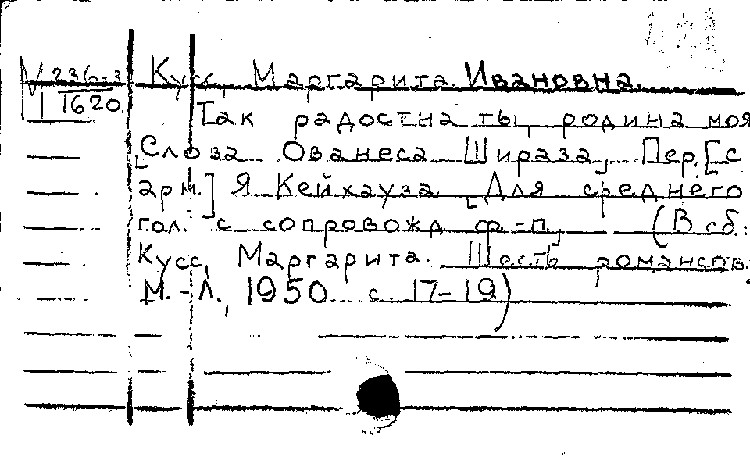 V 236-3 Кусс, Маргарита Ивановна
1 Т620 Так радостна ты, родина моя
[Слова Ованеса Шираза, Пер. [с
арм.] Я Кейхауза [Для среднего
гол. с сопровожд ф-п, (В сб.:
Кусс, Маргарита. Шесть романсов.
М.-Л., 1950 с. 17-19)